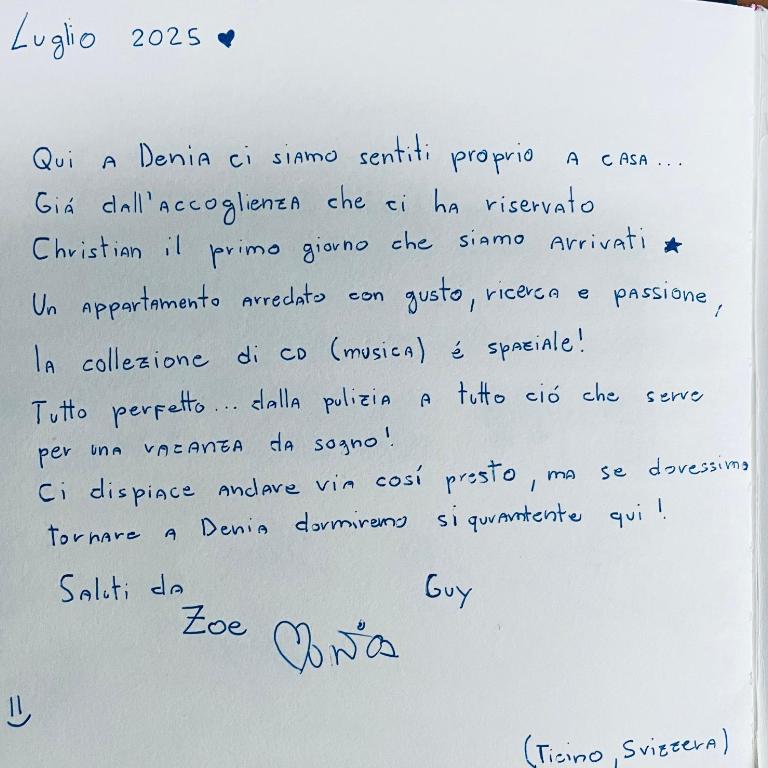 Luglio 2025 ♥
Qui a Denia ci siamo sentiti proprio a casa...
Giá dall'accoglienza che ci ha riservato
Christian il primo giorno che siamo arrivati ★
Un appartamento arredato con gusto, ricerca e passione,
la collezione di CD (musica) é spaziale!
Tutto perfetto... dalla pulizia a tutto ció che serve
per una vacanza da sogno!
Ci dispiace andare via cosí presto, ma se dovessimo
tornare a Denia dormiremo siquramtente qui!
Saluti da
Guy
Zoe
(Ticino, Svizzera)